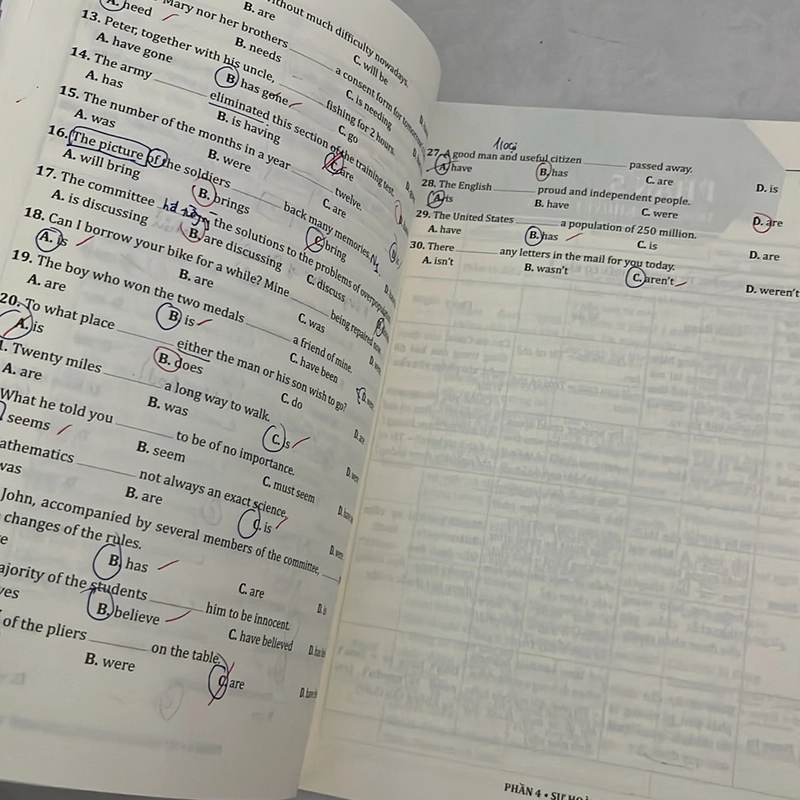 ithout much difficulty nowadays.
A. need B. are C. will be
Mary nor her brothers ______ a consent form for tomorrow
B. needs C. is needing
13. Peter, together with his uncle, ______ fishing for 2 hours.
A. have gone B. has gone C. go
14. The army ______ eliminated this section of the training test.
A. has B. is having C. are
15. The number of the months in a year ______ twelve.
A. was B. were C. are
16. The picture of the soldiers ______ back many memories.
A. will bring B. brings C. bring
17. The committee ______ the solutions to the problems of overpopulation
A. is discussing B. are discussing C. discuss
18. Can I borrow your bike for a while? Mine ______ being repaired now.
A. is B. are C. was
19. The boy who won the two medals ______ a friend of mine.
A. are B. is C. have been
20. To what place ______ either the man or his son wish to go?
A. is B. does C. do
1. Twenty miles ______ a long way to walk.
A. are B. was C. is D. are
What he told you ______ to be of no importance.
seems B. seem C. must seem
athematics ______ not always an exact science.
was B. are C. is
John, accompanied by several members of the committee, ______
changes of the rules.
e B. has C. are D. is
ajority of the students ______ him to be innocent.
ves B. believe C. have believed
of the pliers ______ on the table.
B. were C. are
1 loại
27. A good man and useful citizen ______ passed away.
A. have B. has C. are D. is
28. The English ______ proud and independent people.
A. is B. have C. were D. are
29. The United States ______ a population of 250 million.
A. have B. has C. is D. are
30. There ______ any letters in the mail for you today.
A. isn't B. wasn't C. aren't D. weren't
PHẦN 4 • SỰ HOÀ